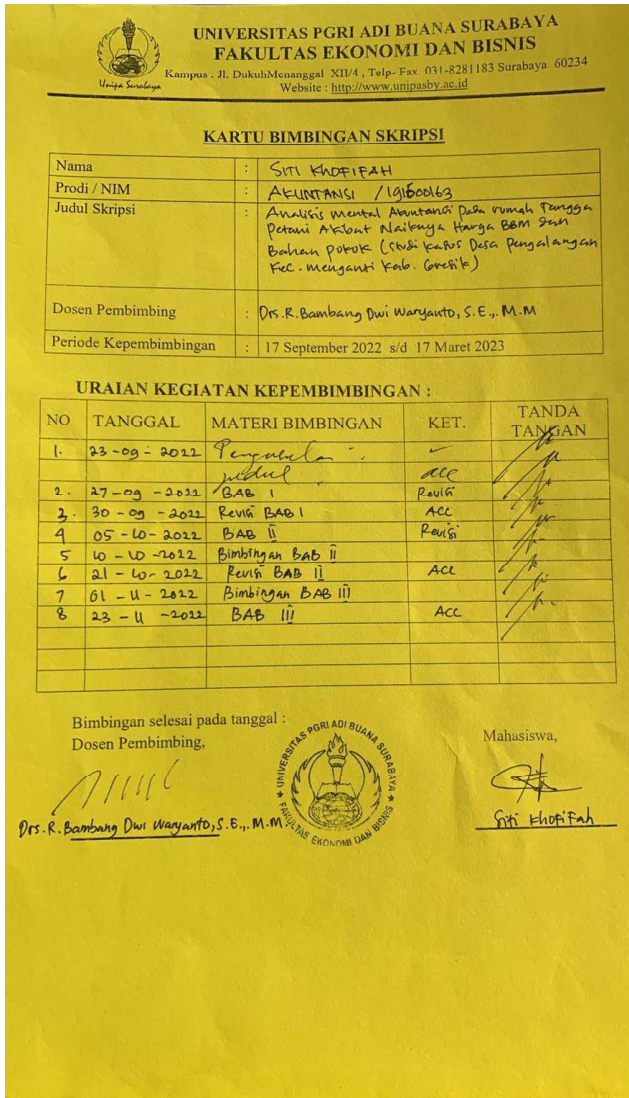 UNIVERSITAS PGRI ADI BUANA SURABAYA
FAKULTAS EKONOMI DAN BISNIS
Kampus : Jl. DukuhMenanggal XII/4 , Telp- Fax. 031-8281183 Surabaya 60234
Website : http://www.unipasby.ac.id
Unipa Surabaya
KARTU BIMBINGAN SKRIPSI
Nama : SITI KHOFIFAH
Prodi / NIM : AKUNTANSI / 191600163
Judul Skripsi : Analisis mental Akuntansi Pada rumah Tangga
Petani Akibat Naiknya Harga BBM dan
Bahan pokok (studi kasus Desa pengalangan
Kec. menganti Kab. Gresik)
Dosen Pembimbing : Drs.R.Bambang Dwi Waryanto, S.E., M.M
Periode Kepembimbingan : 17 September 2022 s/d 17 Maret 2023
URAIAN KEGIATAN KEPEMBIMBINGAN :
NO TANGGAL MATERI BIMBINGAN KET. TANDA TANGAN
1. 23-09-2022 Pengajuan
judul acc
2. 27-09-2022 BAB I Revisi
3. 30-09-2022 Revisi BAB I ACC
4 05-10-2022 BAB II Revisi
5 10-10-2022 Bimbingan BAB II
6 21-10-2022 Revisi BAB II ACC
7 01-11-2022 Bimbingan BAB III
8 23-11-2022 BAB III ACC
Bimbingan selesai pada tanggal :
Dosen Pembimbing,
Mahasiswa,
UNIVERSITAS PGRI ADI BUANA SURABAYA
FAKULTAS EKONOMI DAN BISNIS
Drs.R.Bambang Dwi Waryanto, S.E., M.M
Siti Khofifah